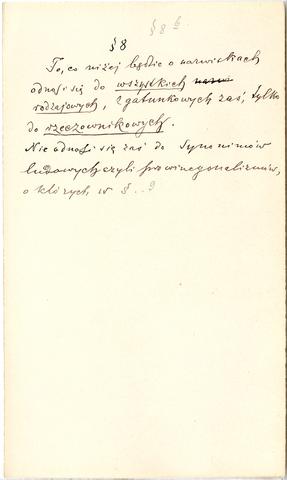 § 8 b.
§ 8
To, co niżej będzie o nazwiskach
odnosi się do wszystkich
rodzajowych, z gatunkowych zaś, tylko
do rzeczownikowych.
Nie odnosi się zaś do Synonimów
ludowych czyli prowincyonalizmów,
o których w § . . 9